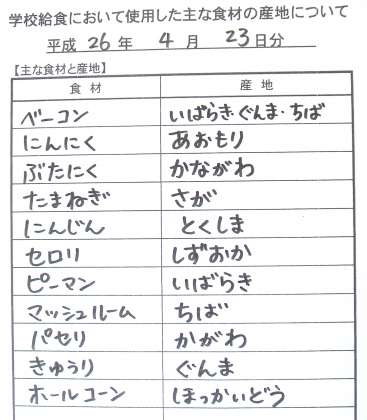 学校給食において使用した主な食材の産地について
平成 26 年 4 月 23 日分
【主な食材と産地】
食 材 産 地
ベーコン いばらき・ぐんま・ちば
にんにく あおもり
ぶたにく かながわ
たまねぎ さが
にんじん とくしま
セロリ しずおか
ピーマン いばらき
マッシュルーム ちば
パセリ かがわ
きゅうり ぐんま
ホールコーン ほっかいどう